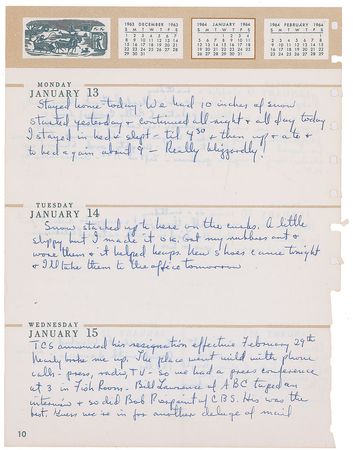 1963 DECEMBER 1963
S M T W T F S
1 2 3 4 5 6 7
8 9 10 11 12 13 14
15 16 17 18 19 20 21
22 23 24 25 26 27 28
29 30 31
1964 JANUARY 1964
S M T W T F S
1 2 3 4
5 6 7 8 9 10 11
12 13 14 15 16 17 18
19 20 21 22 23 24 25
26 27 28 29 30 31
1964 FEBRUARY 1964
S M T W T F S
1
2 3 4 5 6 7 8
9 10 11 12 13 14 15
16 17 18 19 20 21 22
23 24 25 26 27 28 29
MONDAY
JANUARY 13
Stayed home today. We had 10 inches of snow
started yesterday & continued all night & all day today
I stayed in bed & slept - til 4 30 & then up & ate &
to bed again about 9 - Really blizzardly!
TUESDAY
JANUARY 14
Snow stacked up to here on the curbs. A little
slippy but I made it O.K. Got my rubbers out &
wore them & it helped heaps. New shoes came tonight
& I'll take them to the office tomorrow
WEDNESDAY
JANUARY 15
TCS announced his resignation effective February 29th
Nearly broke me up. The place went wild with phone
calls - press, radio, TV - so we had a press conference
at 3 in Fish Room - Bill Lawrence of ABC taped an
interview & so did Bob Pierpoint of CBS. His was the
best. Guess we're in for another deluge of mail
10